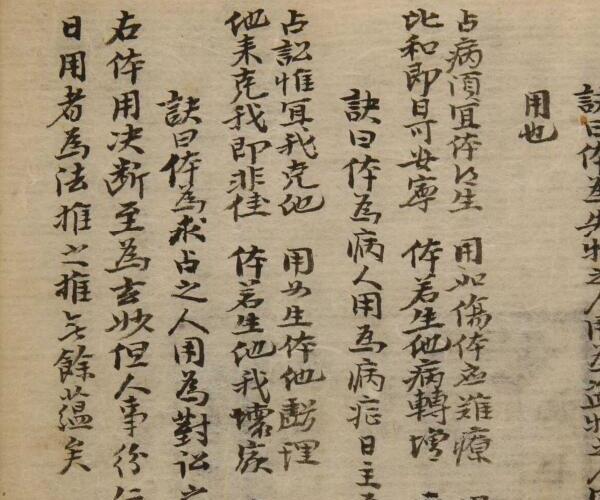 訣曰体為失物之人用為盜物之人
用也
占病須宜体得生　用如傷体定難療
比和即日可安寧　体若生他病轉增
訣曰体為病人用為病症日主
占訟惟宜我克他　用如生体他虧理
他来克我即非佳　体若生他我壞
訣曰体為求占之人用為對訟之
右体用决断至為玄妙但人事紛
日用者為法推之推無餘蘊矣